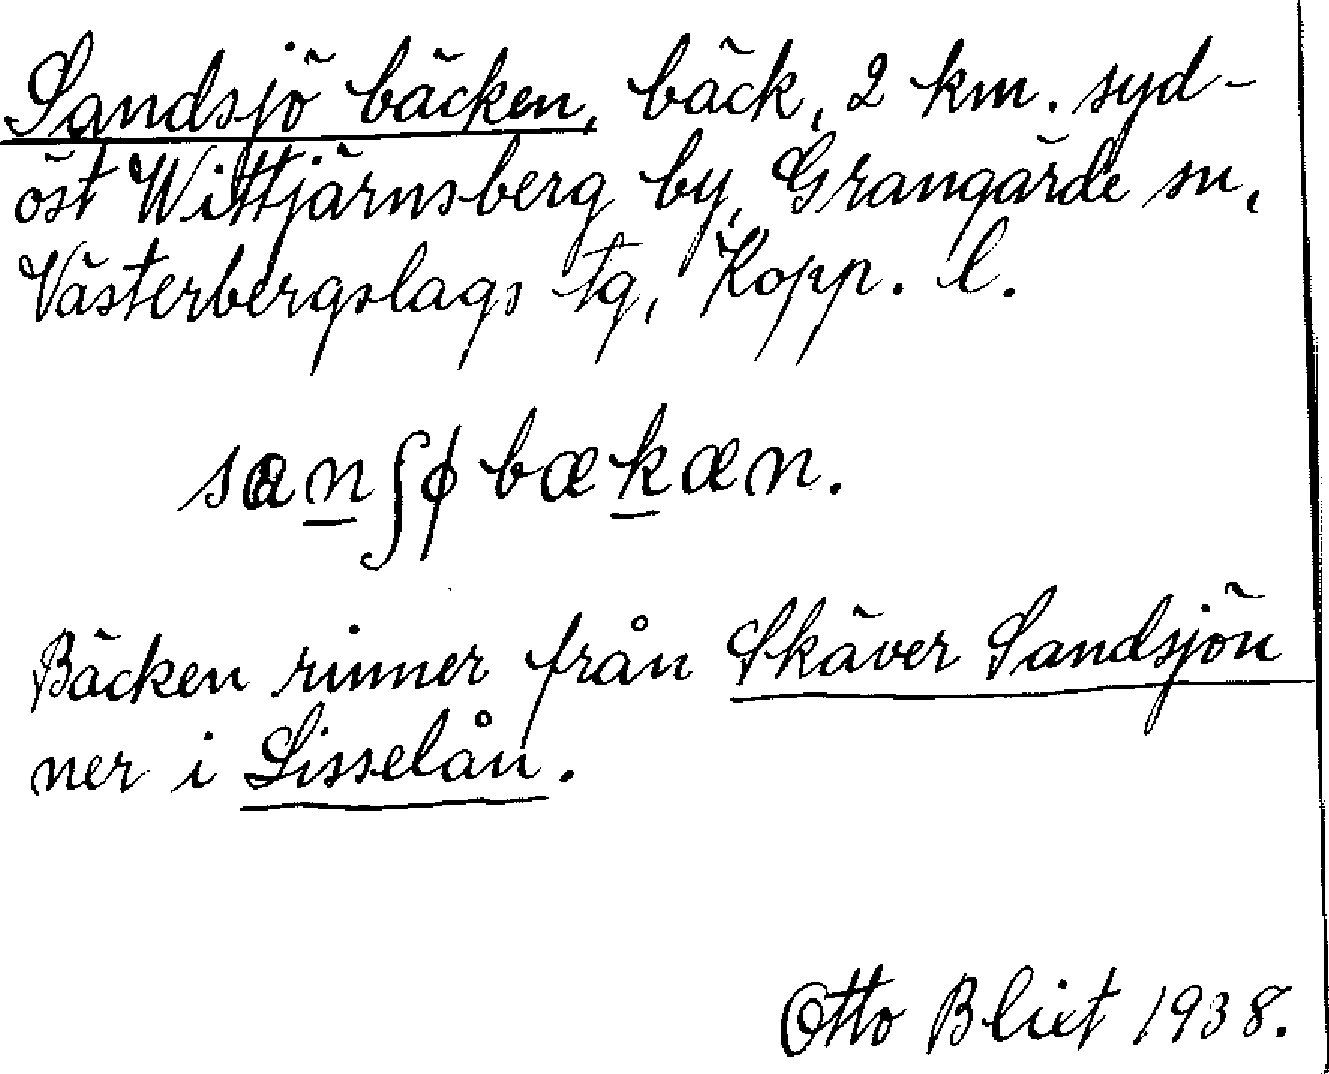 Sandsjö bäcken, bäck, 2 km. syd-
öst Wittjärnsberg by, Grangärde sn,
Västerbergslags tg, Kopp. l.
san̲ʃɸbæk̲æn.
Bäcken rinner från Skäver Sandsjön
ner i Lisselån.
Otto Blixt 1938.